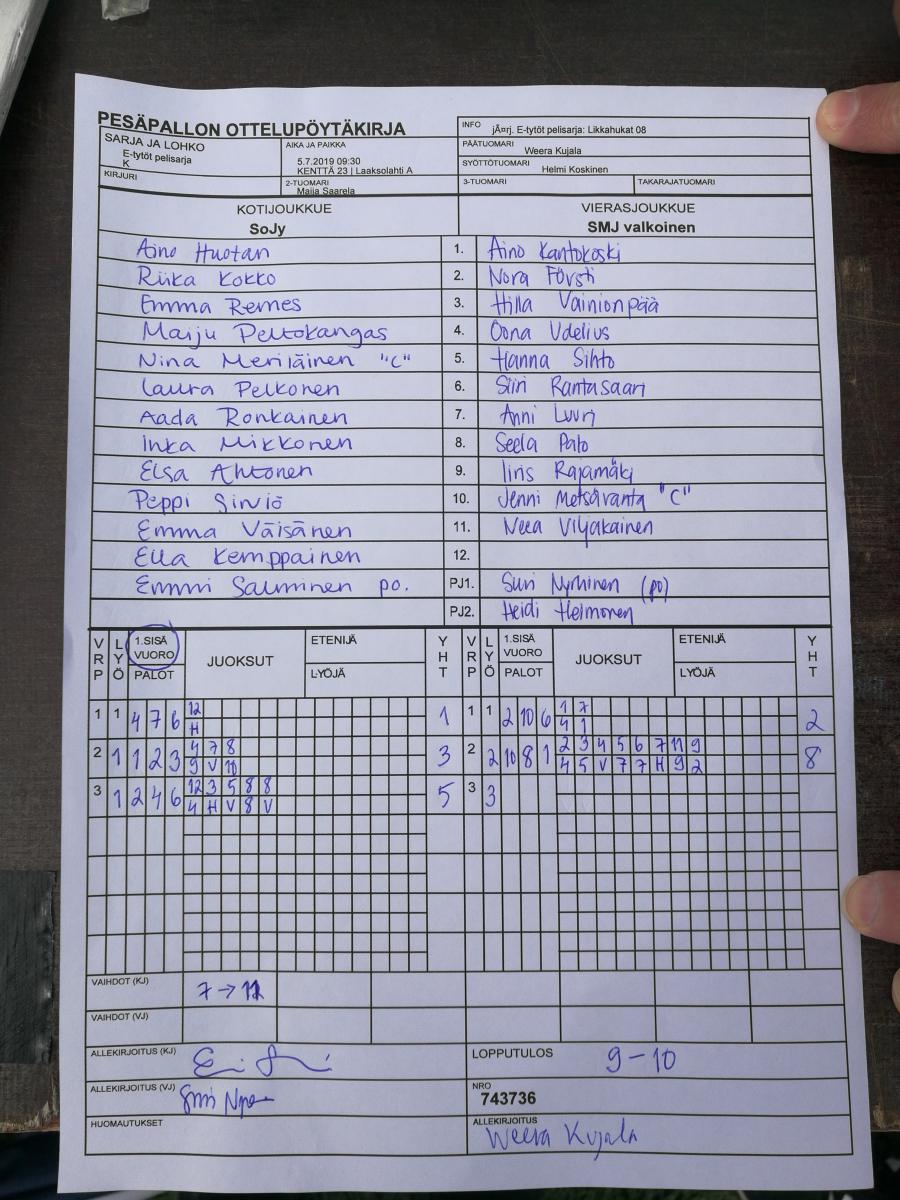 PESÄPALLON OTTELUPÖYTÄKIRJA
INFO jÃ¤rj. E-tytöt pelisarja: Likkahukat 08
SARJA JA LOHKO
E-tytöt pelisarja
K
AIKA JA PAIKKA
5.7.2019 09:30
KENTTÄ 23 | Laaksolahti A
PÄÄTUOMARI Weera Kujala
SYÖTTÖTUOMARI Helmi Koskinen
KIRJURI
2-TUOMARI
Maija Saarela
3-TUOMARI
TAKARAJATUOMARI
KOTIJOUKKUE
SoJy
VIERASJOUKKUE
SMJ valkoinen
Aino Huotari 1. Aino Kantokoski
Riika Kokko 2. Nora Försti
Emma Remes 3. Hilla Vainionpää
Maiju Peltokangas 4. Oona Udelius
Nina Meriläinen "C" 5. Hanna Sihto
Laura Pelkonen 6. Siiri Rantasaari
Aada Ronkainen 7. Anni Luuri
Inka Mikkonen 8. Seela Palo
Elsa Ahtonen 9. Iiris Rajamäki
Peppi Sirviö 10. Jenni Metsävanta "C"
Emma Väisänen 11. Neea Viljakainen
Ella Kemppainen 12.
Emmi Salminen po. PJ1. Suvi Nyrhinen (po)
PJ2. Heidi Helmonen
VRP LYÖ 1.SISÄ VUORO PALOT JUOKSUT ETENIJÄ LYÖJÄ YHT VRP LYÖ 1.SISÄ VUORO PALOT JUOKSUT ETENIJÄ LYÖJÄ YHT
1 1 4 7 6 12 1 1 1 2 10 6 1 7 2
H 4 1
2 1 1 2 3 4 7 8 3 2 2 10 8 1 2 3 4 5 6 7 11 9 8
9 V 10 4 5 V 7 7 H 9 2
3 1 2 4 6 12 3 5 8 8 5 3 3
4 H V 8 V
VAIHDOT (KJ) 7 → 12
VAIHDOT (VJ)
ALLEKIRJOITUS (KJ)
LOPPUTULOS 9-10
ALLEKIRJOITUS (VJ)
NRO
743736
HUOMAUTUKSET
ALLEKIRJOITUS
Weera Kujala